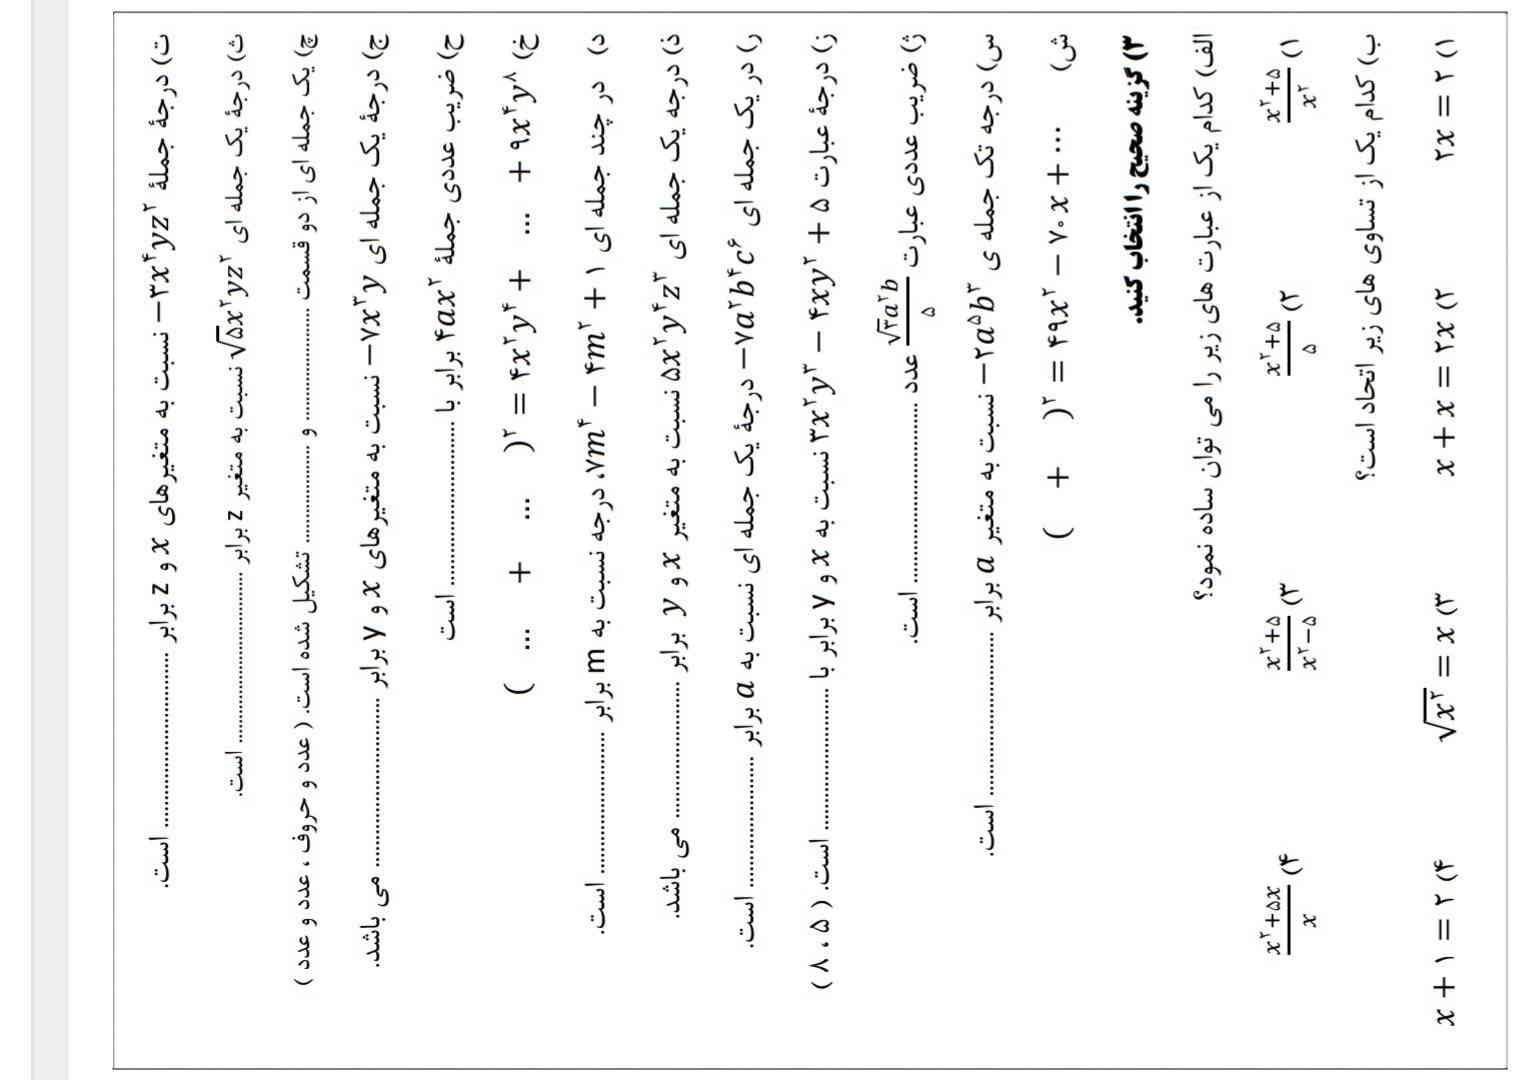 ت) درجهٔ جملهٔ −۳x⁴yz² نسبت به متغیرهای x و z برابر .................................. است.
ث) درجهٔ یک جمله ای √۵x²yz² نسبت به متغیر z برابر .................................. است.
چ) یک جمله ای از دو قسمت .................... و .................... تشکیل شده است. ( عدد و حروف ، عدد و عدد )
ج) درجهٔ یک جمله ای −۷x³y نسبت به متغیرهای x و y برابر .................................. می باشد.
ح) ضریب عددی جملهٔ ۴ax² برابر با .................................. است
خ) ( ... + ... )² = ۴x²y⁴ + ... + ۹x⁴y⁸
د) در چند جمله ای ۷m⁴ − ۴m² + ۱، درجه نسبت به m برابر .................................. است.
ذ) درجه یک جمله ای ۵x²y⁴z³ نسبت به متغیر x و y برابر ............................ می باشد.
ر) در یک جمله ای −۷a²b⁴c⁶ درجهٔ یک جمله ای نسبت به a برابر ............................ است.
ز) درجهٔ عبارت ۳x²y³ − ۴xy² + ۵ نسبت به x و y برابر با ............................ است. ( ۵ ، ۸ )
ژ) ضریب عددی عبارت √۳a²b / ۵ عدد .................................. است.
س) درجه تک جمله ی −۲a⁵b³ نسبت به متغیر a برابر .................................. است.
ش) ( + )² = ۴۹x² − ۷۰x + ...
۳) گزینه صحیح را انتخاب کنید.
الف) کدام یک از عبارت های زیر را می توان ساده نمود؟
۱) x²+۵ / x² ۲) x²+۵ / ۵ ۳) x²+۵ / x²−۵ ۴) x²+۵x / x
ب) کدام یک از تساوی های زیر اتحاد است؟
۱) ۲x = ۲ ۲) x + x = ۲x ۳) √x² = x ۴) x + ۱ = ۲